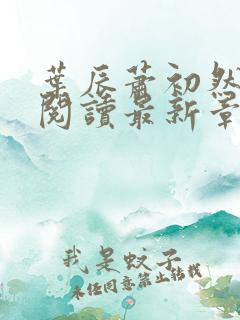 葉辰蕭初然
閱讀最新章
我是蚊子
未经同意禁止转载